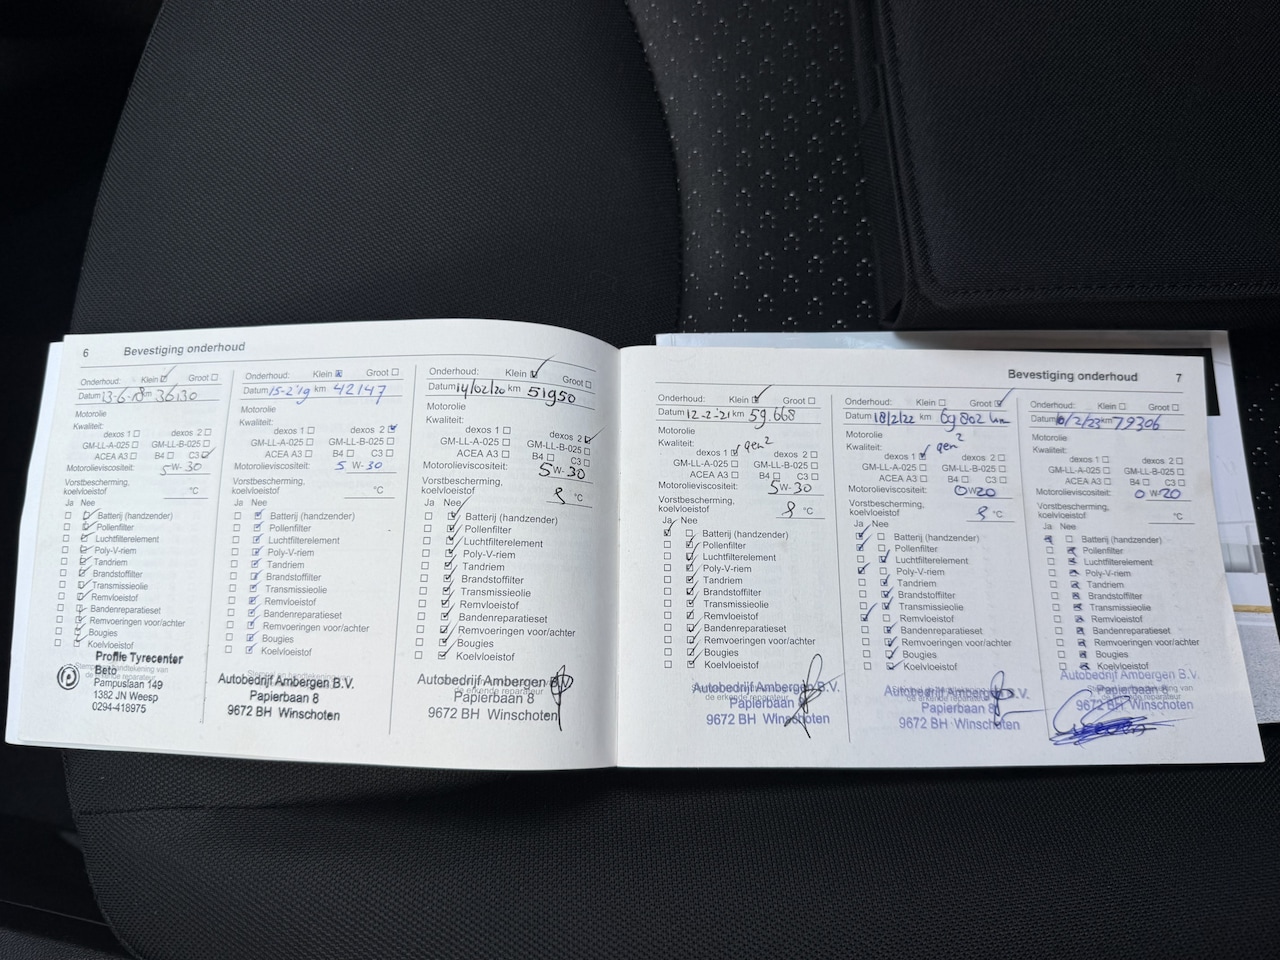 6 Bevestiging onderhoud
Onderhoud: Klein Groot
Datum 13-6-18 km 36130
Motorolie
Kwaliteit:
dexos 1 dexos 2
GM-LL-A-025 GM-LL-B-025
ACEA A3 B4 C3
Motorolieviscositeit: 5W-30
Vorstbescherming,
koelvloeistof °C
Ja Nee
Batterij (handzender)
Pollenfilter
Luchtfilterelement
Poly-V-riem
Tandriem
Brandstoffilter
Transmissieolie
Remvloeistof
Bandenreparatieset
Remvoeringen voor/achter
Bougies
Koelvloeistof
Profile Tyrecenter
Beto
Pampuslaan 149
1382 JN Weesp
0294-418975
Onderhoud: Klein Groot
Datum 15-2-'19 km 42147
Motorolie
Kwaliteit:
dexos 1 dexos 2
GM-LL-A-025 GM-LL-B-025
ACEA A3 B4 C3
Motorolieviscositeit: 5 W-30
Vorstbescherming,
koelvloeistof °C
Ja Nee
Batterij (handzender)
Pollenfilter
Luchtfilterelement
Poly-V-riem
Tandriem
Brandstoffilter
Transmissieolie
Remvloeistof
Bandenreparatieset
Remvoeringen voor/achter
Bougies
Koelvloeistof
Autobedrijf Ambergen B.V.
Papierbaan 8
9672 BH Winschoten
Onderhoud: Klein Groot
Datum 14/02/20 km 51950
Motorolie
Kwaliteit:
dexos 1 dexos 2
GM-LL-A-025 GM-LL-B-025
ACEA A3 B4 C3
Motorolieviscositeit: 5W-30
Vorstbescherming,
koelvloeistof °C
Ja Nee
Batterij (handzender)
Pollenfilter
Luchtfilterelement
Poly-V-riem
Tandriem
Brandstoffilter
Transmissieolie
Remvloeistof
Bandenreparatieset
Remvoeringen voor/achter
Bougies
Koelvloeistof
Autobedrijf Ambergen B.V.
de erkende reparateur
Papierbaan 8
9672 BH Winschoten
Bevestiging onderhoud 7
Onderhoud: Klein Groot
Datum 12-2-21 km 59.668
Motorolie
Kwaliteit:
dexos 1 gen2 dexos 2
GM-LL-A-025 GM-LL-B-025
ACEA A3 B4 C3
Motorolieviscositeit: 5W-30
Vorstbescherming,
koelvloeistof °C
Ja Nee
Batterij (handzender)
Pollenfilter
Luchtfilterelement
Poly-V-riem
Tandriem
Brandstoffilter
Transmissieolie
Remvloeistof
Bandenreparatieset
Remvoeringen voor/achter
Bougies
Koelvloeistof
Autobedrijf Ambergen B.V.
de erkende reparateur
Papierbaan 8
9672 BH Winschoten
Onderhoud: Klein Groot
Datum 18/2/22 km 69802 km
Motorolie
Kwaliteit:
dexos 1 gen2 dexos 2
GM-LL-A-025 GM-LL-B-025
ACEA A3 B4 C3
Motorolieviscositeit: 0W20
Vorstbescherming,
koelvloeistof °C
Ja Nee
Batterij (handzender)
Pollenfilter
Luchtfilterelement
Poly-V-riem
Tandriem
Brandstoffilter
Transmissieolie
Remvloeistof
Bandenreparatieset
Remvoeringen voor/achter
Bougies
Koelvloeistof
Autobedrijf Ambergen B.V.
Papierbaan 8
9672 BH Winschoten
Onderhoud: Klein Groot
Datum /2/23 km 79306
Motorolie
Kwaliteit:
dexos 1 dexos 2
GM-LL-A-025 GM-LL-B-025
ACEA A3 B4 C3
Motorolieviscositeit: 0 W-20
Vorstbescherming,
koelvloeistof °C
Ja Nee
Batterij (handzender)
Pollenfilter
Luchtfilterelement
Poly-V-riem
Tandriem
Brandstoffilter
Transmissieolie
Remvloeistof
Bandenreparatieset
Remvoeringen voor/achter
Bougies
Koelvloeistof
Autobedrijf Ambergen B.V.
Papierbaan 8
de erkende reparateur
9672 BH Winschoten